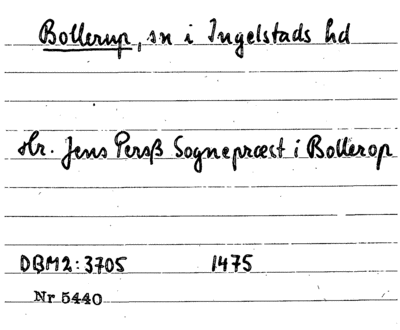 Bollerup, sn i Ingelstads hd
Hr. Jens Persß Sognepræst i Bollerop
DBM2:3705 1475
Nr 5440